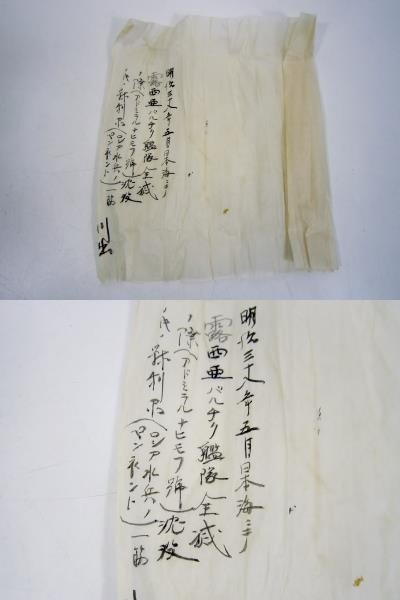 明治三十八年五月日本海ニテ
露西亜バルチク艦隊全滅
ノ際(アドミラルナヒモフ號)沈没
氏ノ鹵利品(ロシア水兵ノ
一筋
川出